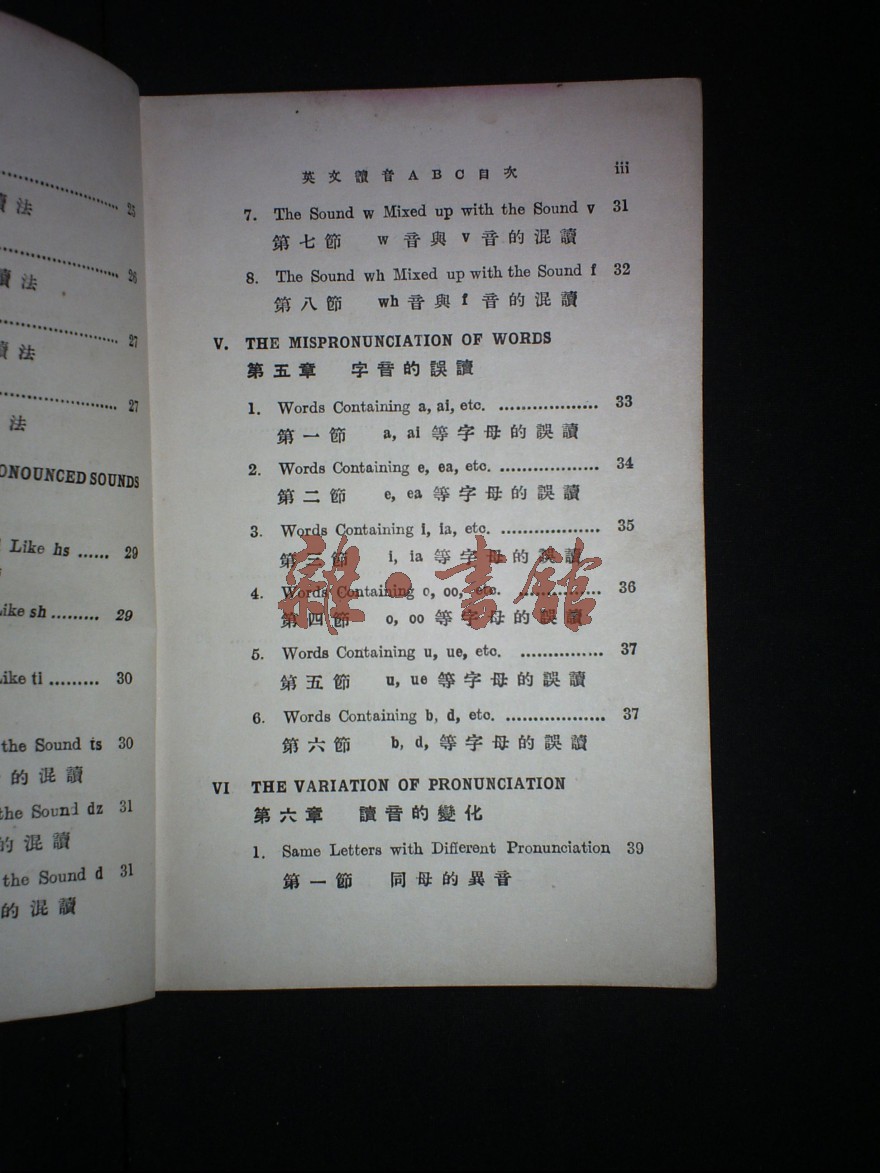 25
讀法
26
讀法
27
讀法
27
法
ONOUNCED SOUNDS
Like hs ...... 29
Like sh ......... 29
Like ti ......... 30
the Sound ts 30
的混讀
the Sound dz 31
的混讀
the Sound d 31
的混讀
英文讀音ABC目次 iii
7. The Sound w Mixed up with the Sound v 31
第七節 w音與v音的混讀
8. The Sound wh Mixed up with the Sound f 32
第八節 wh音與f音的混讀
V. THE MISPRONUNCIATION OF WORDS
第五章 字音的誤讀
1. Words Containing a, ai, etc. .................. 33
第一節 a, ai等字母的誤讀
2. Words Containing e, ea, etc. .................. 34
第二節 e, ea等字母的誤讀
3. Words Containing i, ia, etc. .................. 35
第三節 i, ia等字母的誤讀
4. Words Containing o, oo, etc. ............... 36
第四節 o, oo等字母的誤讀
5. Words Containing u, ue, etc. ............... 37
第五節 u, ue等字母的誤讀
6. Words Containing b, d, etc. .................. 37
第六節 b, d, 等字母的誤讀
VI THE VARIATION OF PRONUNCIATION
第六章 讀音的變化
1. Same Letters with Different Pronunciation 39
第一節 同母的異音
雜·書館